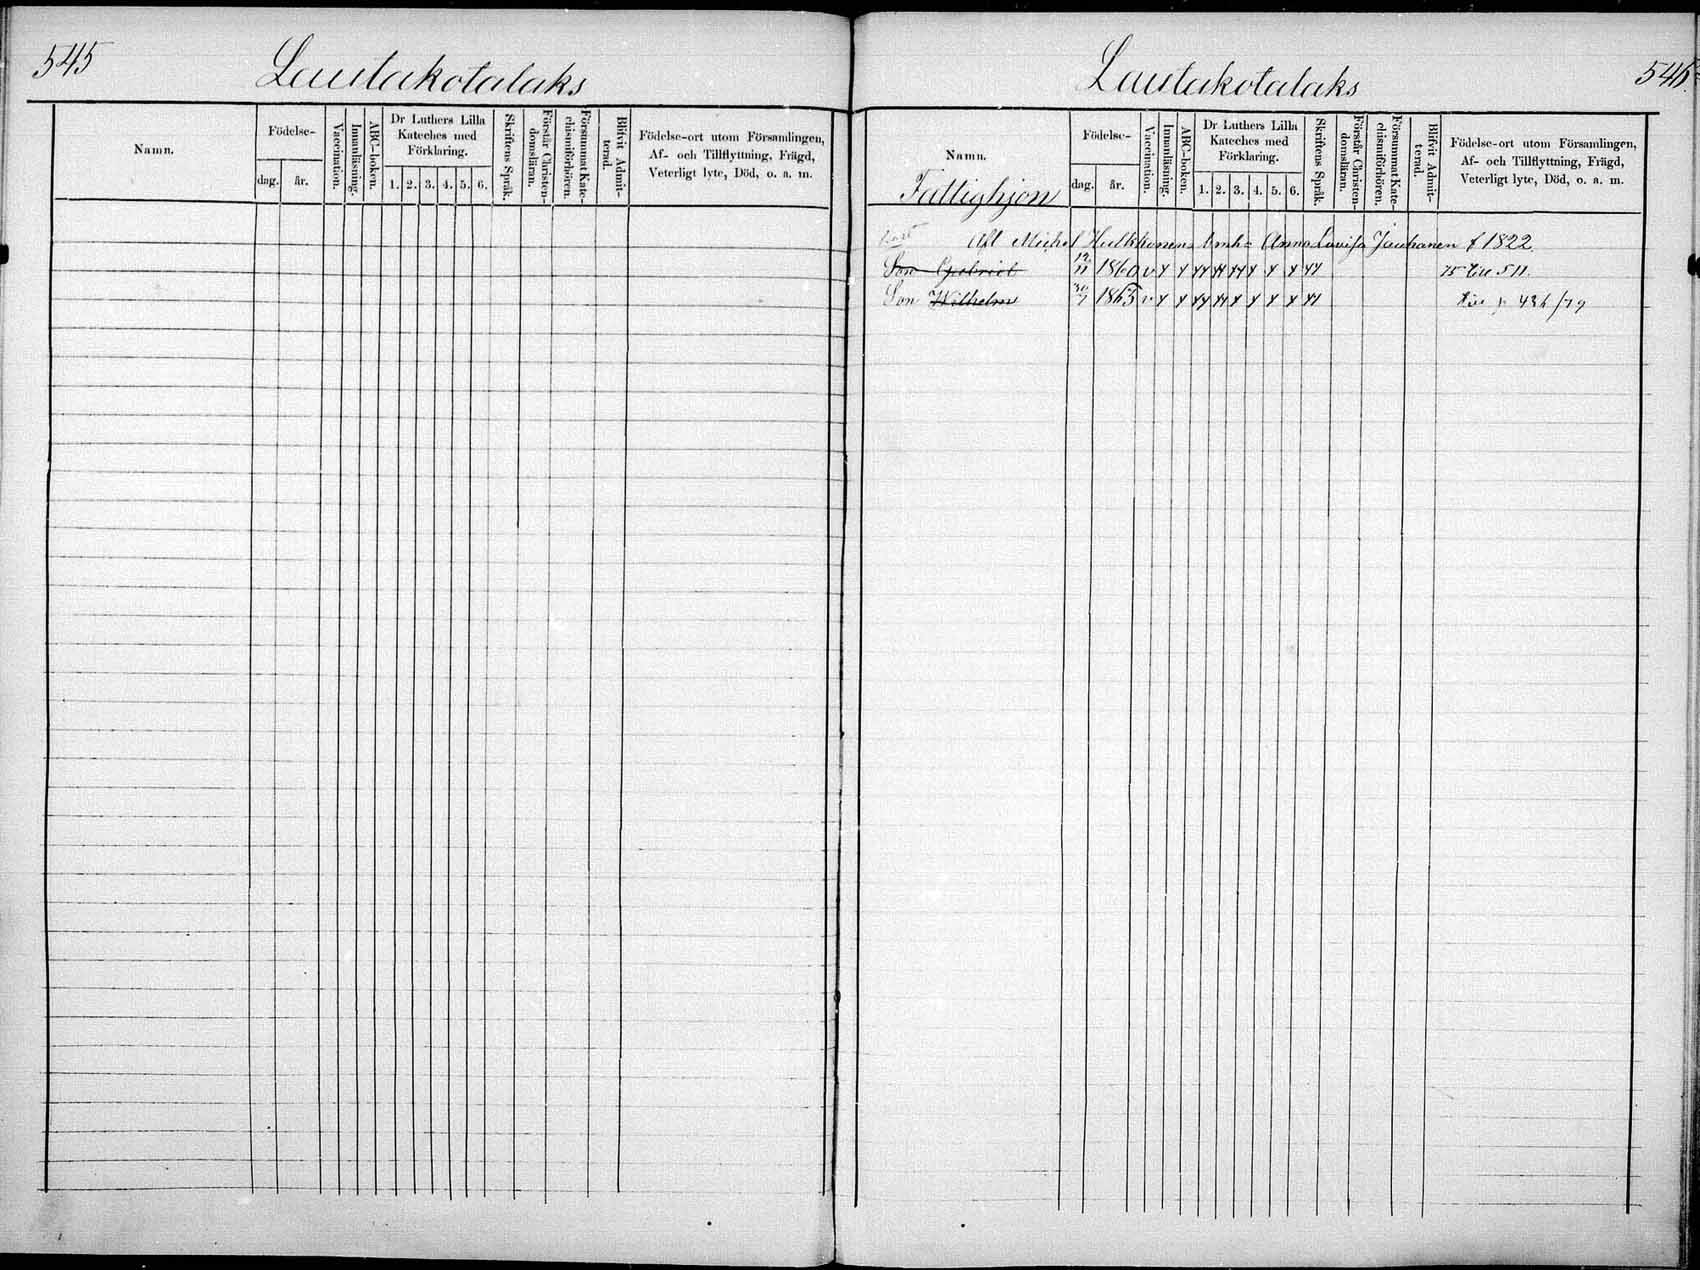 545
Lautakotalaks
Namn.
Födelse-
dag.
år.
Vaccination.
Innanläsning.
ABC-boken.
Dr Luthers Lilla
Kateches med
Förklaring.
1. 2. 3. 4. 5. 6.
Skriftens Språk.
Förstår Christen-
domsläran.
Försummat Kate-
chismiförhören.
Blifvit Admit-
terad.
Födelse-ort utom Församlingen,
Af- och Tillflyttning, Frägd,
Veterligt lyte, Död, o. a. m.
Lautakotalaks
546
Namn.
Fattighjon
Födelse-
dag.
år.
Vaccination.
Innanläsning.
ABC-boken.
Dr Luthers Lilla
Kateches med
Förklaring.
1. 2. 3. 4. 5. 6.
Skriftens Språk.
Förstår Christen-
domsläran.
Försummat Kate-
chismiförhören.
Blifvit Admit-
terad.
Födelse-ort utom Församlingen,
Af- och Tillflyttning, Frägd,
Veterligt lyte, Död, o. a. m.
Afl Michel Hulkkonens Anna Lovisa Jauhanen f 1822
Son Gabriel 12/11 1860 v 511
Son Wilhelm 30/7 1865 v 436/79